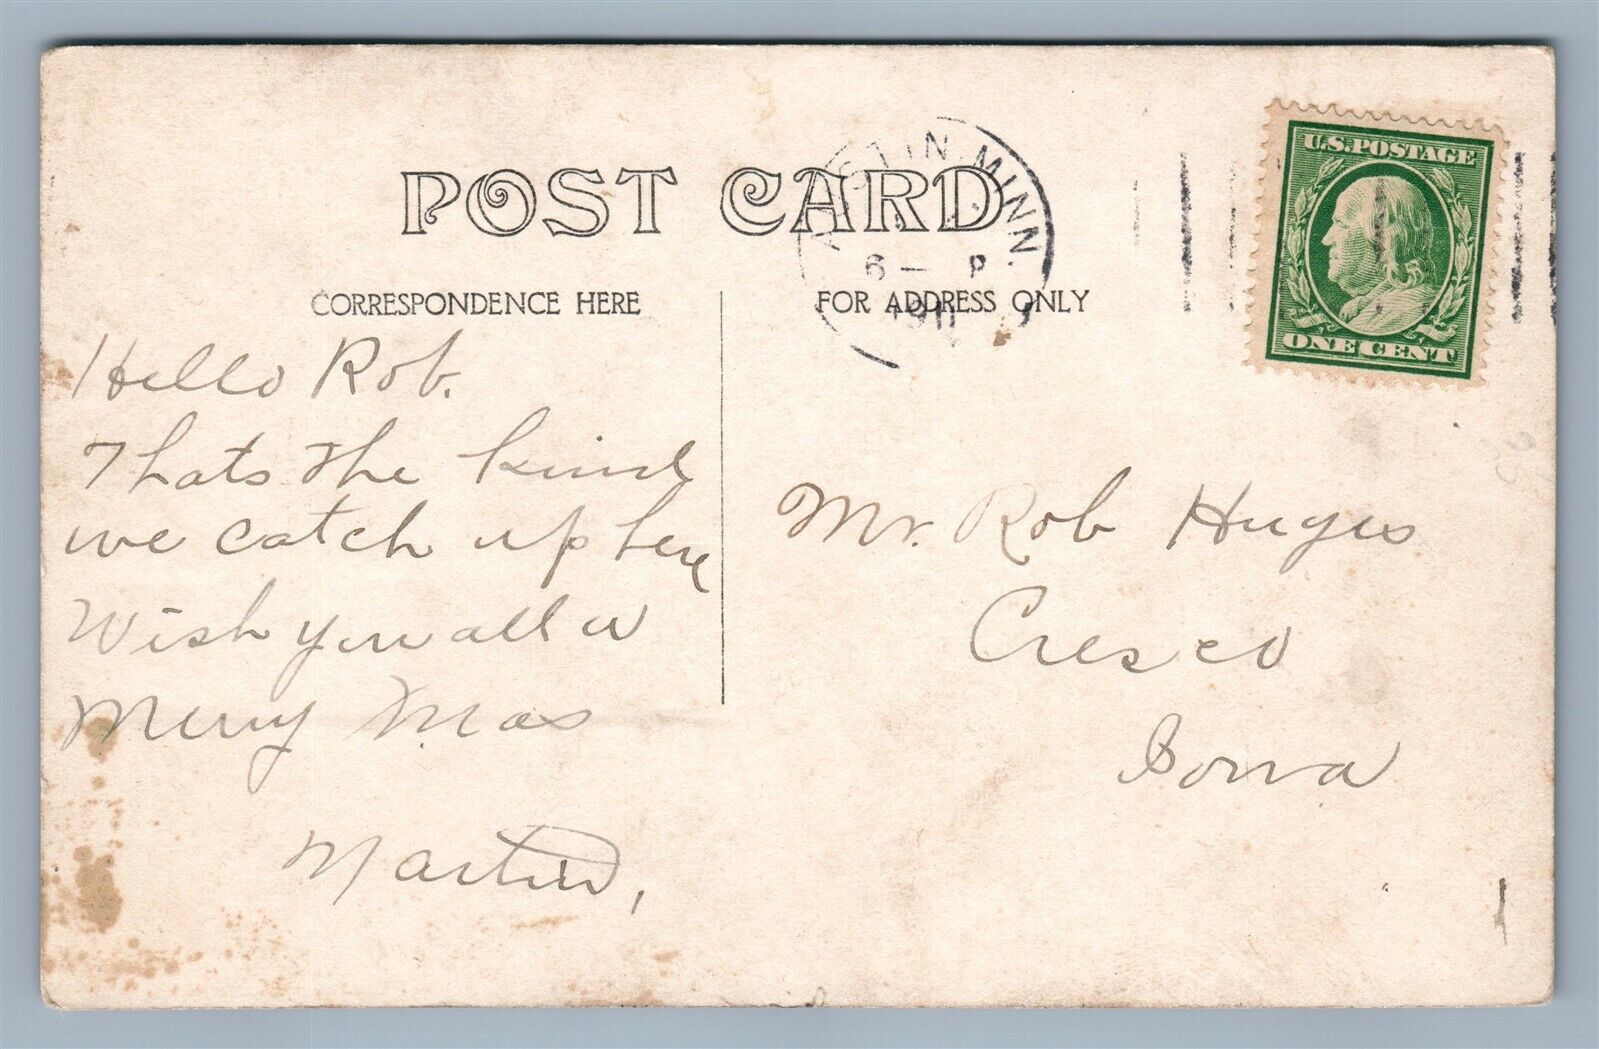 POST CARD
AUSTIN MINN.
6 — P
1911
U.S. POSTAGE
ONE CENT
CORRESPONDENCE HERE
FOR ADDRESS ONLY
Hello Rob.
Thats the kind
we catch up here
Wish you all a
Merry Xmas
Martin,
Mr. Rob Huges
Cresco
Iowa